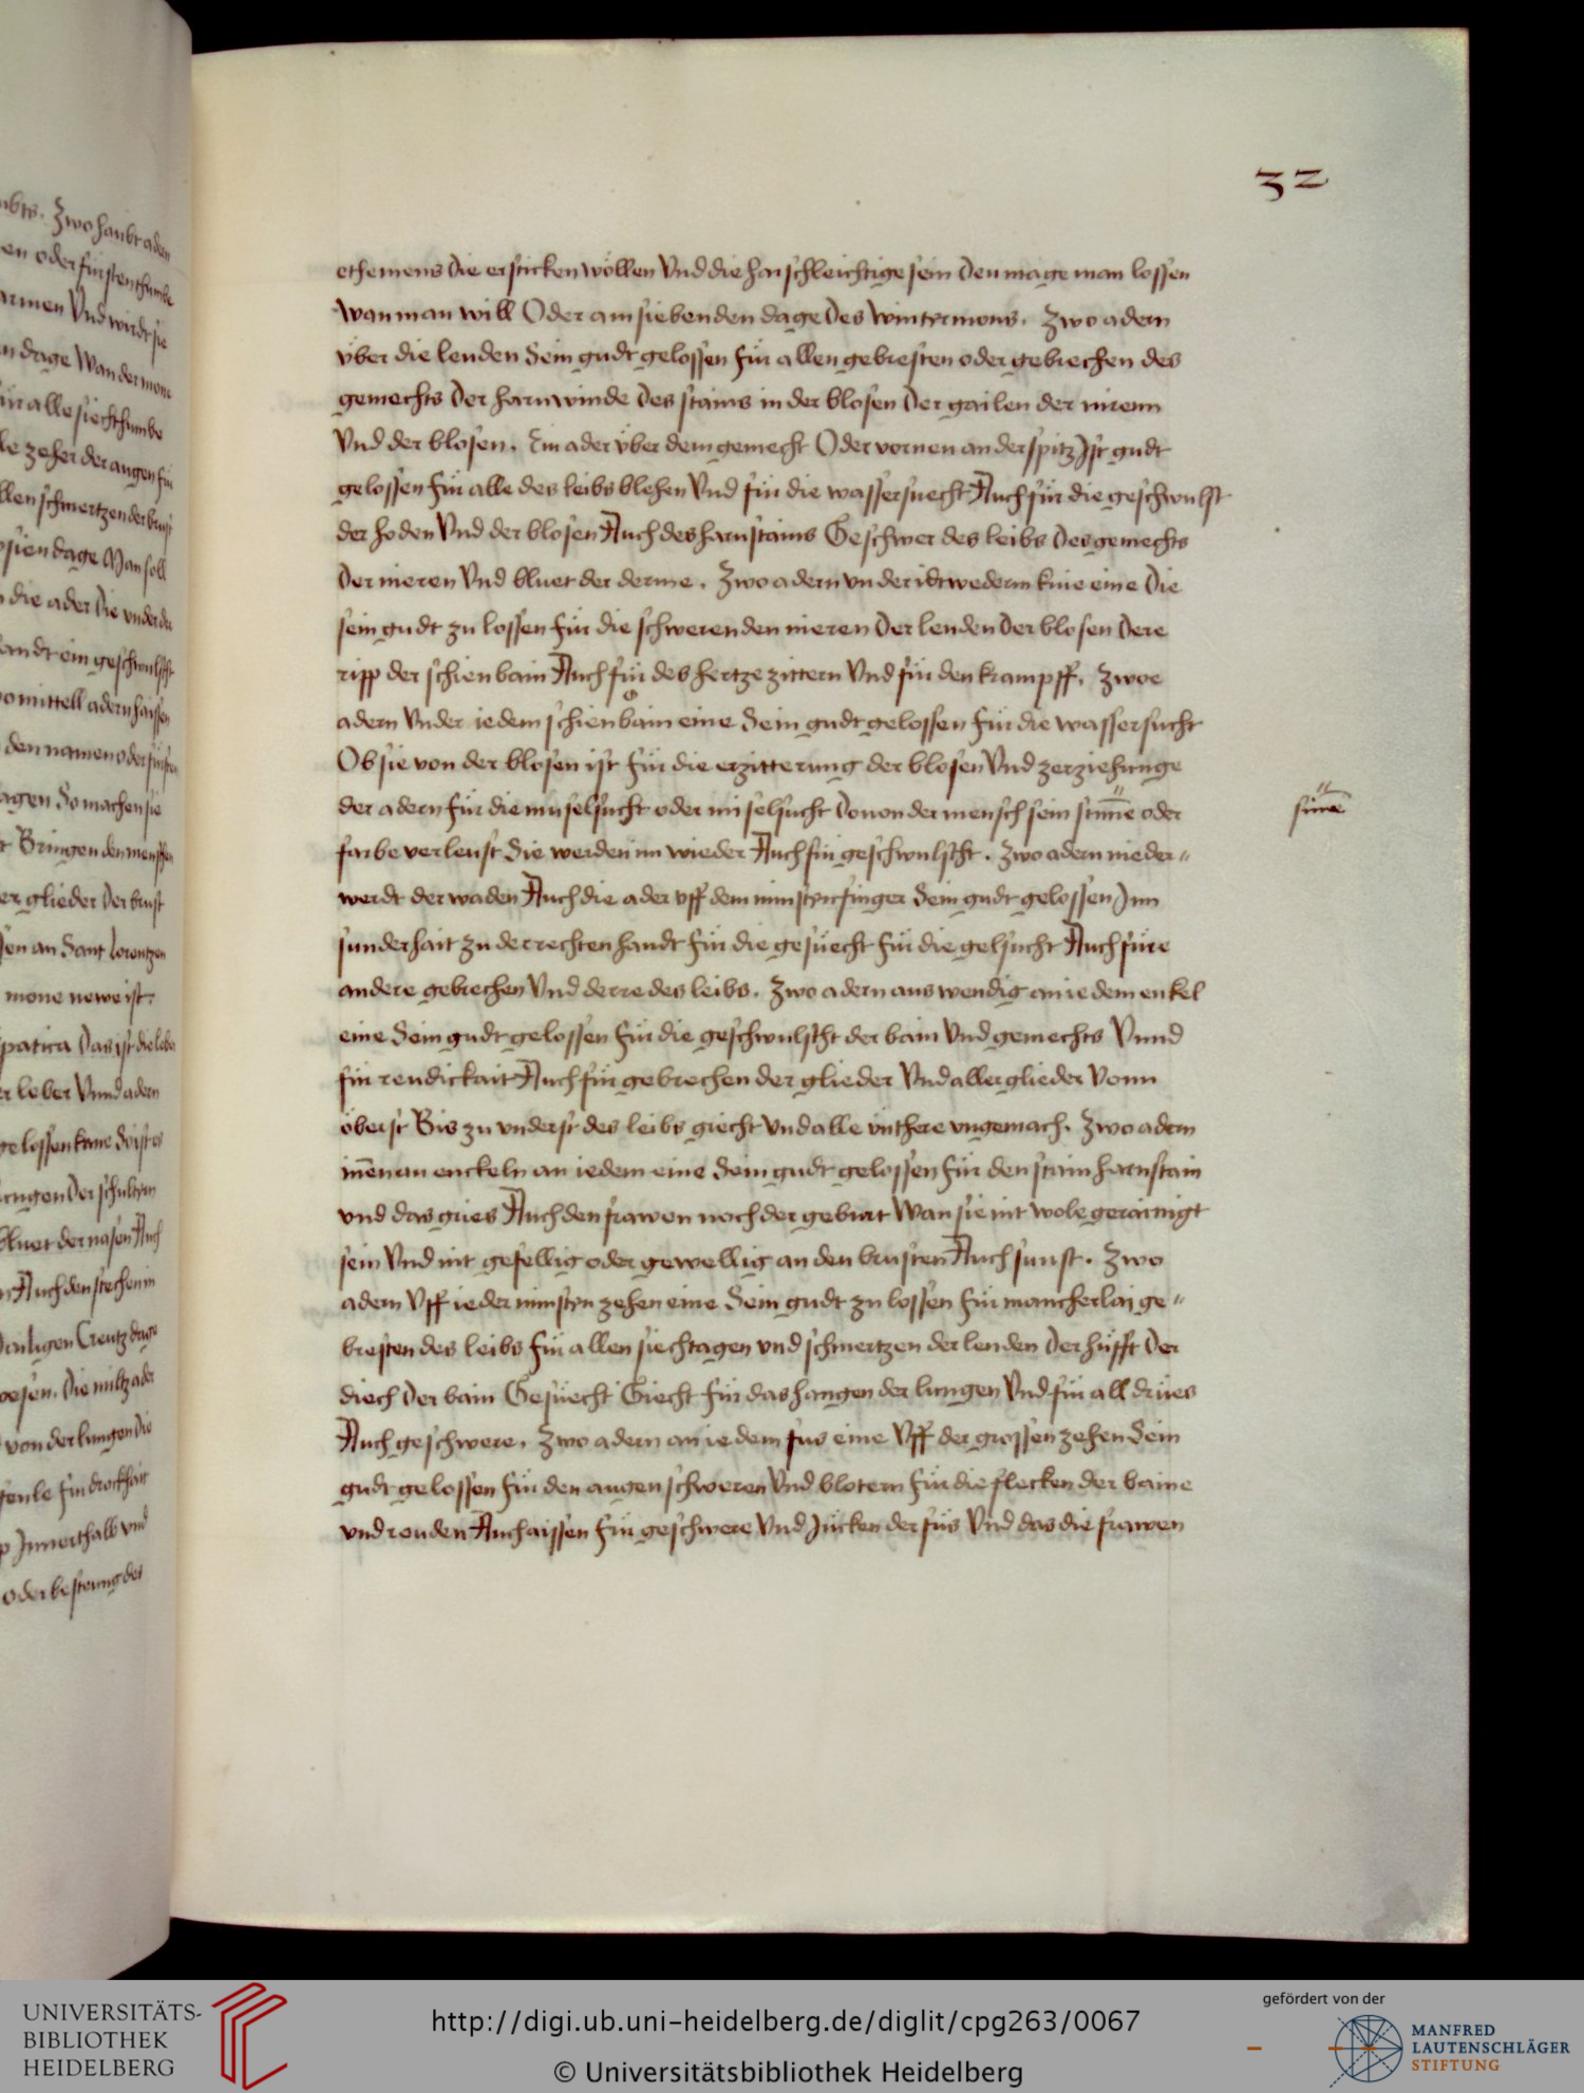 32
ethemens die ersticken wöllen Vnd die harschleichtige sein Den mage man lossen
Wan man will Oder am siebenden dage des wintermons. Zwo adern
vber die lenden Sein gudt gelossen für allen gebresten oder gebrechen des
gemechts Der harnwinde Des stains in der blosen Der gailen der nirenn
Vnd der blosen. Ein ader vber dem gemecht Oder vornen an der spitz Ist gudt
gelossen für alle des leibs blehen Vnd für die wassersuecht Auch für die geschwulst
der hoden Vnd der blosen Auch des harnstains Geschwer des leibs Des gemechts
Der nieren Vnd bluet der derme. Zwo adern vnder idtwederm knie eine Die
sein gudt zu lossen für die schweren den nieren Der lenden Der blosen Dere
ripp der schienbain Auch für des hertze zittern Vnd für den krampff. Zwoe
adern Vnder iedem schienbain eine Sein gudt gelossen für die wassersucht
Ob sie von der blosen ist für die erzitterung der blosen Vnd zerziehunge
der adern für die muselsucht oder miselsucht Douon der mensch sein stim̄e oder
farbe verleust Die werden im wieder Auch für geschwulscht. Zwo adern nieder=
werdt der waden Auch die ader vff dem minsten finger Sein gudt gelossen Inn
sunderhait zu der rechten handt für die gesüecht für die gelsucht Auch füre
andere gebrechen Vnd derre des leibs. Zwo adern auswendig an iedem enkel
eine Sein gudt gelossen für die geschwulscht der bain Vnd gemechts Vnnd
für reudickait Auch für gebrechen der glieder Vnd aller glieder Vonn
öberst Bis zu vnderst des leibs giecht Vnd alle vngemach. Zwo adern
inēn an enckeln an iedem eine Sein gudt gelossen für den stain harnstain
vnd das gries Auch den frawen noch der geburt Wan sie nit wole gerainigt
sein Vnd nit gefellig oder gewellig an den brusten Auch sunst. Zwo
adern Vff ieder minsten zehen eine Sein gudt zu lossen für mancherlai ge=
bresten des leibs für allen siechtagen vnd schmertzen der lenden Der hüfft Der
diech Der bain Gesüecht Giecht für das hangen der lungen Vnd für all drües
Auch geschwere. Zwo adern an iedem fus eine Vff der grossen zehen Sein
gudt gelossen für den augen schweren Vnd blotern für die flecken der baine
vnd reuden Auch aissen für geschwere Vnd Jücken der füs Vnd das die frawen
UNIVERSITÄTS-
BIBLIOTHEK
HEIDELBERG
http://digi.ub.uni-heidelberg.de/diglit/cpg263/0067
© Universitätsbibliothek Heidelberg
gefördert von der
MANFRED
LAUTENSCHLÄGER
STIFTUNG